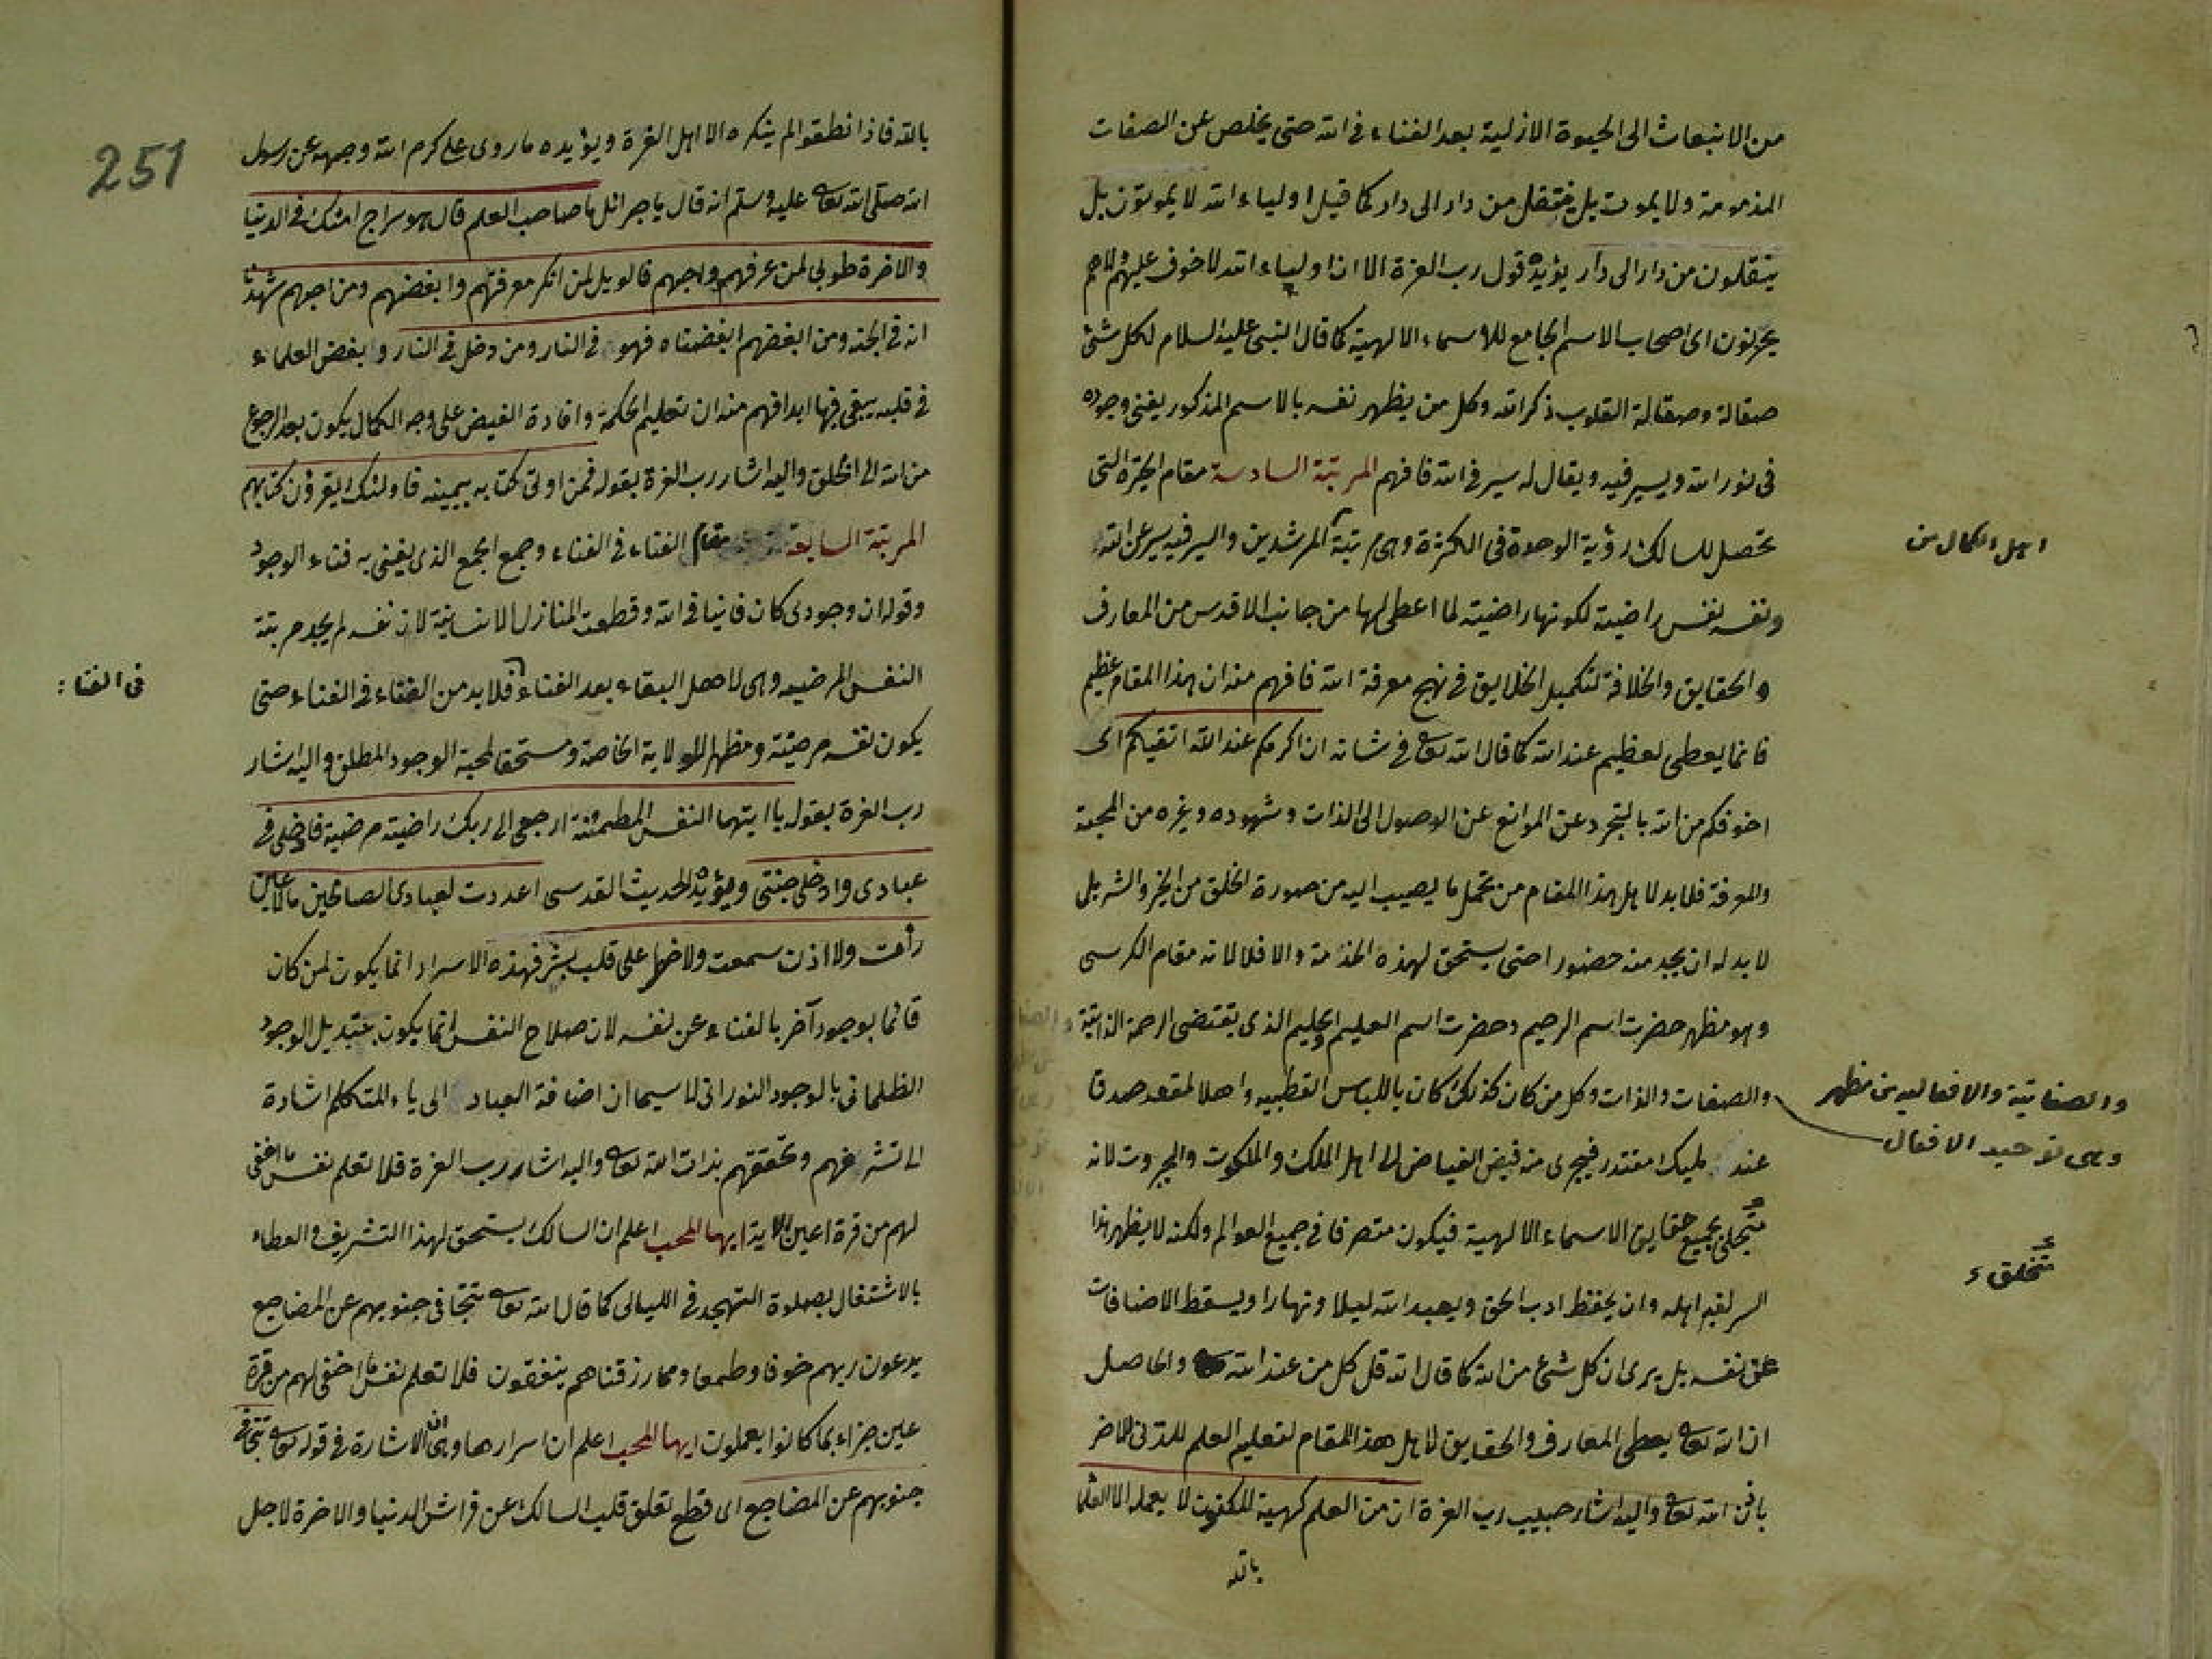 من الانبعاث الى الحيوة الازلية بعد الفناء فى الله حتى يخلص عن الصفات
المذمومة ولا يموت بل ينتقل من دار الى دار كما قيل اولياء الله لا يموتون بل
ينتقلون من دار الى دار يؤيده قول رب العزة الا ان اولياء الله لا خوف عليهم ولا هم
يحزنون اى اصحاب الاسم الجامع للاسماء الالهية كما قال النبى عليه السلام لكل شئ
صقالة وصقالة القلوب ذكر الله وكل من يظهر نفسه بالاسم المذكور يفنى وجوده
فى نور الله ويسير فيه ويقال له سير فى الله فافهم المرتبة السادسة مقام الحيرة التى
تحصل للسالك رؤية الوحدة فى الكثرة وهى مرتبة المرشدين والسير فيه سير عن الله
اهل الكمال من
ونفسه نفس راضية لكونها راضية لما اعطى لها من جانب الاقدس من المعارف
والحقايق والخلافة لتكميل الخلايق فى نهج معرفة الله فافهم منه ان هذا المقام عظيم
فانما يعطى لعظيم عند الله كما قال الله تعالى فى شانه ان اكرمكم عند الله اتقيكم اى
اخوفكم من الله بالتجرد عن الموانع عن الوصول الى الذات وشهوده وغيره من المحبة
والمعرفة فلا بد لاهل هذا المقام من تحمل ما يصيب اليه من صورة الخلق من الخير والشر بل
لا بد له ان يجد منه حضورا حتى يستحق لهذه الخدمة والا فلا لانه مقام الكرسى
وهو مظهر حضرت اسم الرحيم وحضرت اسم العليم الحليم الذى يقتضى الرحمة الذاتية
والصفاتية والافعالية من مظهر
وهى توحيد الافعال
والصفات والذات وكل من كان كذلك كان باللباس القطبيه واهلا لمقعد صدق
عند مليك مقتدر فيجرى منه فيض الفياض الى اهل الملك والملكوت والجبروت لانه
متجلى بجميع حقايق الاسماء الالهية فيكون متصرفا فى جميع العوالم ولكنه لا يظهر هذا
متخلق
السر لغير اهله وان يحفظ ادب الحق ويعبد الله ليلا ونهارا ويسقط الاضافات
عن نفسه بل يرى ان كل شئ من الله كما قال الله قل كل من عند الله والحاصل
ان الله تعالى يعطى المعارف والحقايق لاهل هذا المقام لتعليم العلم للدنى الاخر
باذن الله تعالى واليه اشار حبيب رب العزة ان من العلم كهيئة المكنون لا يعلمه الا العلماء
بالله
251
بالله فاذا نطقوا لم ينكره الا اهل الغرة ويؤيده ما روى على كرم الله وجهه عن رسول
الله صلى الله تعالى عليه وسلم انه قال يا جبرائل ما صاحب العلم قال هو سراج امتك فى الدنيا
والاخرة طوبى لمن عرفهم واحبهم فالويل لمن انكر معرفتهم وابغضهم ومن احبهم شهدنا
انه فى الجنة ومن ابغضهم ابغضناه فهو فى النار ومن دخل فى النار وبغض العلماء
فى قلبه يبقى فيها ابدا فهم منه ان تعليم الحكمة وافادة الفيض على وجه الكمال يكون بعد الرجوع
من الله الى الخلق واليه اشار رب العزة بقوله فمن اوتى كتابه بيمينه فاولئك يقرؤن كتابهم
المرتبة السابعة مقام الفناء فى الفناء وجمع الجمع الذى يفنى به فناء الوجود
وقوله ان وجودى كان فانيا فى الله وقطعت المنازل الانسانية لان نفسه لم يجد مرتبة
النفس المرضيه وهى لاهل البقاء بعد الفناء فلا بد من الفناء فى الفناء حتى
فى الفناء :
يكون نفسه مرضية ومظهرا للولاية الخاصة ومستحقا لمحبة الوجود المطلق واليه اشار
رب العزة بقوله يا ايتها النفس المطمئنة ارجعى الى ربك راضية مرضية فادخلى فى
عبادى وادخلى جنتى ويؤيده الحديث القدسى اعددت لعبادى الصالحين ما لا عين
رأت ولا اذن سمعت ولا خطر على قلب بشر فهذه الاسرار انما يكون لمن كان
قائما بوجود آخر بالفناء عن نفسه لان صلاح النفس انما يكون بتبديل الوجود
الظلمانى بالوجود النورانى لا سيما ان اضافة العباد الى ياء المتكلم اشارة
الى تشرفهم وتحققهم بذات الله تعالى واليه اشار رب العزة فلا تعلم نفس ما اخفى
لهم من قرة اعين الاية ايها المحب اعلم ان السالك يستحق لهذا التشريف والعطاء
بالاشتغال بصلوة التهجد فى الليالى كما قال الله تعالى تتجافى جنوبهم عن المضاجع
يدعون ربهم خوفا وطمعا ومما رزقناهم ينفقون فلا تعلم نفس ما اخفى لهم من قرة
عين جزاء بما كانوا يعملون ايها المحب اعلم ان اسرارها وهى ان الاشارة فى قوله تعالى تتجافى
جنوبهم عن المضاجع اى قطع تعلق قلب السالك عن فراش الدنيا والاخرة لاجل